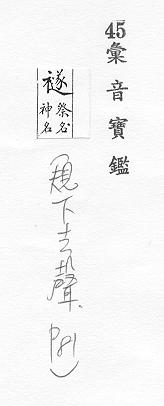 45
彙音寶鑑
禭
祭名
神名
規下去聲 P81)